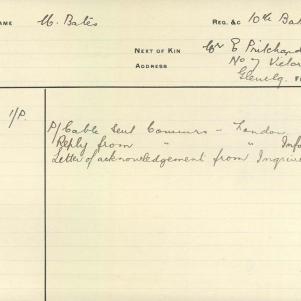 NAME M. Bates REG. &c 10th Bat
NEXT OF KIN Mr E Pritchard
ADDRESS No 7 Victor
Glenelg.
1/P. P/Cable sent Commrs - London
Reply from " " Info
Letter of acknowledgement from